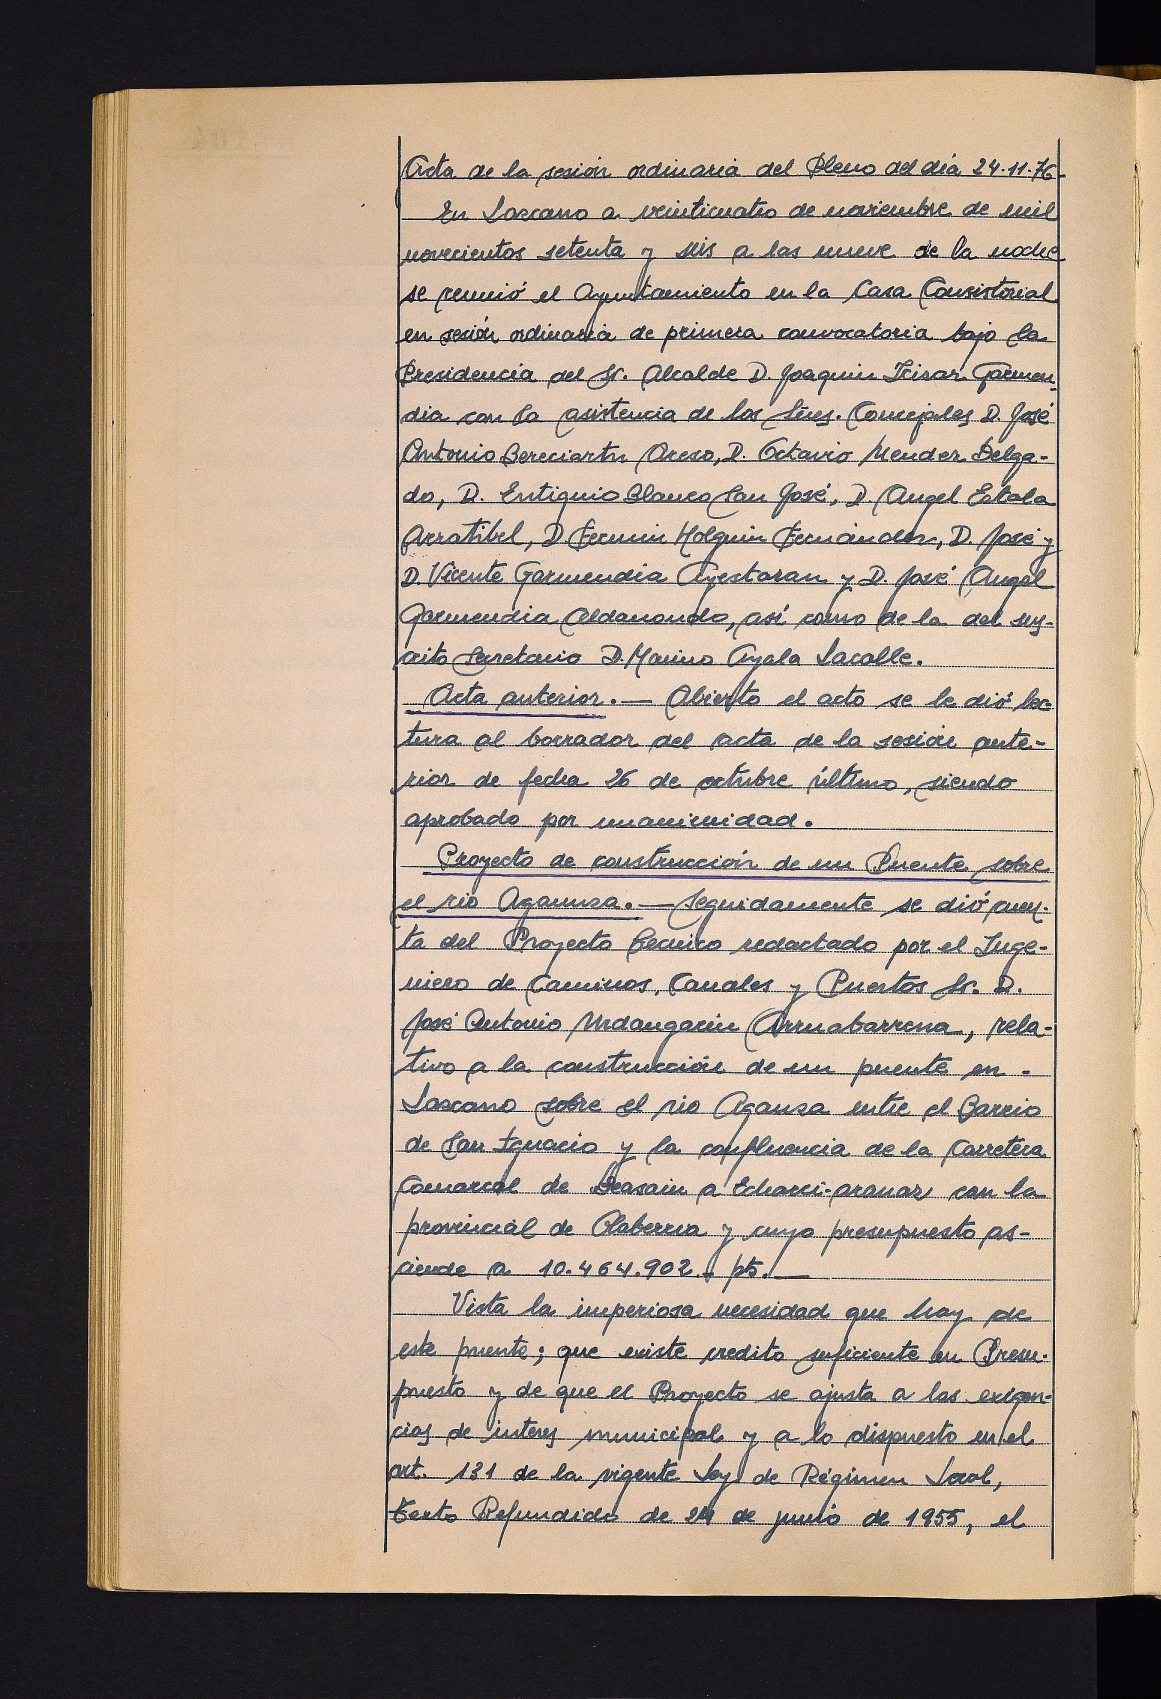 Acta de la sesión ordinaria del Pleno del día 24-11-76
En Lazcano a veinticuatro de noviembre de mil
novecientos setenta y seis a las nueve de la noche
se reunió el Ayuntamiento en la Casa Consistorial
en sesión ordinaria de primera convocatoria bajo la
Presidencia del Sr. Alcalde D. Joaquin Iciar Garmen-
dia con la asistencia de los Sres. Concejales D. José
Antonio Bereciartu Orezo, D. Octavio Mendez Delga-
do, D. Eutiquio Blanco San José, D. Angel Estala
Arratibel, D. Fermin Holguin Fernández, D. José y
D. Vicente Garmendia Ayestaran y D. José Angel
Garmendia Aldanondo, así como de la del sus-
crito Secretario D. Marino Ayala Lacalle.
Acta anterior.— Abierto el acto se le dió lec-
tura al borrador del acta de la sesión ante-
rior de fecha 26 de octubre último, siendo
aprobado por unanimidad.
Proyecto de construcción de un Puente sobre
el rio Agaunza.— Seguidamente se dió cuen-
ta del Proyecto técnico redactado por el Inge-
niero de Caminos, Canales y Puertos Sr. D.
José Antonio Urdangarin Arruabarrena, rela-
tivo a la construcción de un puente en -
Lazcano sobre el rio Agauza entre el Barrio
de San Ignacio y la confluencia de la Carretera
Comarcal de Beasain a Echarri-aranaz con la
provincial de Olaberria y cuyo presupuesto as-
ciende a 10.464.902.- pts.—
Vista la imperiosa necesidad que hay de
este puente; que existe credito suficiente en Presu-
puesto y de que el Proyecto se ajusta a las exigen-
cias de interes municipal y a lo dispuesto en el
art. 131 de la vigente Ley de Régimen Local,
Texto Refundido de 24 de junio de 1955, el